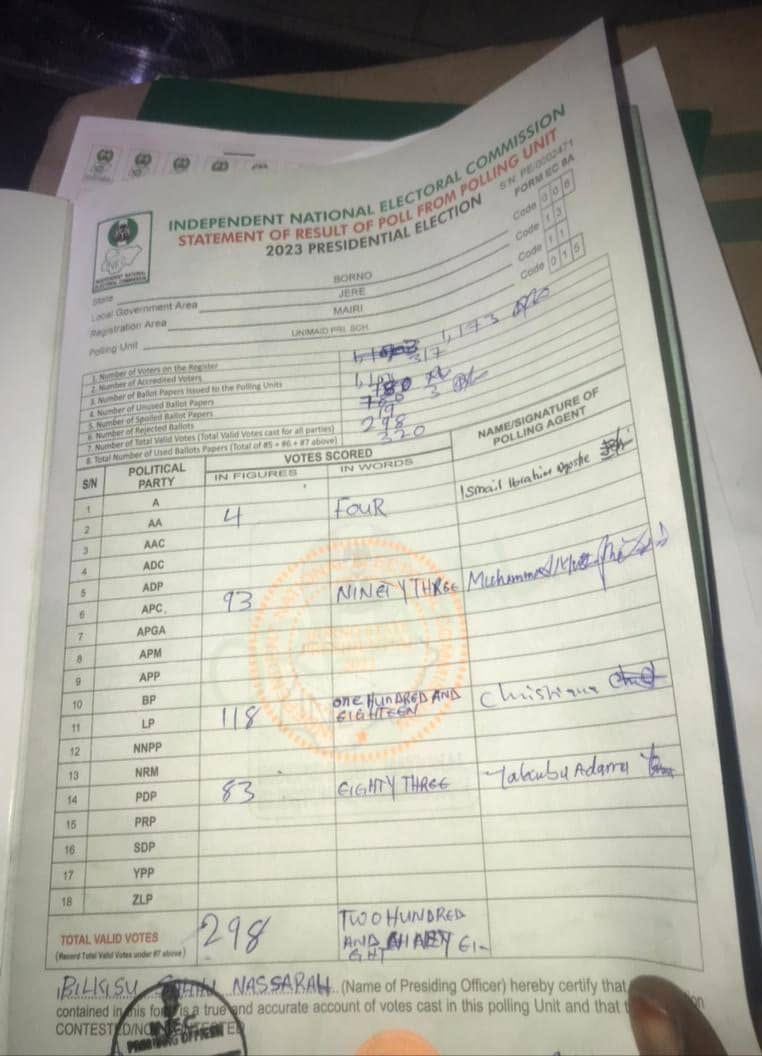 INDEPENDENT NATIONAL ELECTORAL COMMISSION
STATEMENT OF RESULT OF POLL FROM POLLING UNIT
2023 PRESIDENTIAL ELECTION
S/N. PE/0002471
FORM EC 8A
State BORNO Code 0 0 8
Local Government Area JERE Code 1 3
Registration Area MAIRI Code 1 1
Polling Unit UNIMAID PRI. SCH. Code 0 1 5
1. Number of Voters on the Register 1,173
2. Number of Accredited Voters 317
3. Number of Ballot Papers Issued to the Polling Units
4. Number of Unused Ballot Papers
5. Number of Spoiled Ballot Papers 3
6. Number of Rejected Ballots 19
7. Number of Total Valid Votes (Total Valid Votes cast for all parties) 298
8. Total Number of Used Ballots Papers (Total of #5 + #6 + #7 above) 320
S/N POLITICAL PARTY VOTES SCORED NAME/SIGNATURE OF POLLING AGENT
IN FIGURES IN WORDS
1 A
2 AA 4 FOUR Ismail Ibrahim
3 AAC
4 ADC
5 ADP
6 APC 93 NINETY THREE Muhammed
7 APGA
8 APM
9 APP
10 BP
11 LP 118 one HUNDRED AND EIGHTEEN
12 NNPP
13 NRM
14 PDP 83 EIGHTY THREE Yakubu Adamu
15 PRP
16 SDP
17 YPP
18 ZLP
TOTAL VALID VOTES 298 TWO HUNDRED
(Record Total Valid Votes under #7 above) AND EI-
GHT
BILKISU NASSARAH (Name of Presiding Officer) hereby certify that
contained in this form is a true and accurate account of votes cast in this polling Unit and that
CONTESTED/
PRESIDING OFFICER